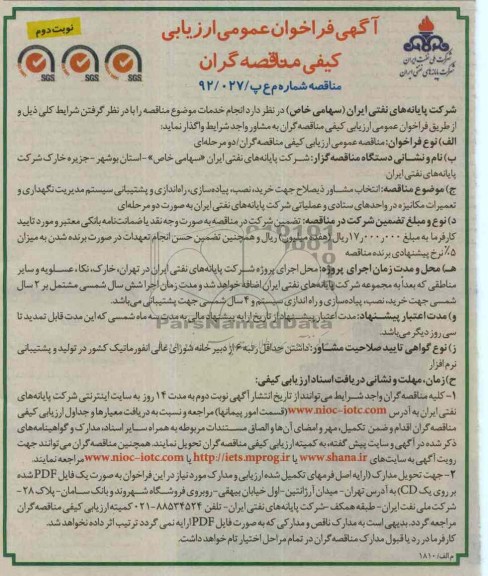 آگهی فراخوان عمومی ارزیابی
کیفی مناقصه گران
مناقصه شماره م ع پ/۹۲/۰۲۷
نوبت دوم
شرکت ملی نفت ایران
شرکت پایانه های نفتی ایران
SGS SGS SGS
شرکت پایانه های نفتی ایران (سهامی خاص) در نظر دارد انجام خدمات موضوع مناقصه را با در نظر گرفتن شرایط کلی ذیل و
از طریق فراخوان عمومی ارزیابی کیفی مناقصه گران به مشاور واجد شرایط واگذار نماید:
الف) نوع فراخوان: مناقصه عمومی ارزیابی کیفی مناقصه گران/دو مرحله ای
ب) نام و نشانی دستگاه مناقصه گزار: شرکت پایانه های نفتی ایران «سهامی خاص» -استان بوشهر -جزیره خارک شرکت
پایانه های نفتی ایران
ج) موضوع مناقصه: انتخاب مشاور ذیصلاح جهت خرید، نصب، پیاده سازی، راه اندازی و پشتیبانی سیستم مدیریت نگهداری و
تعمیرات مکانیزه در واحدهای ستادی و عملیاتی شرکت پایانه های نفتی ایران به صورت دو مرحله ای
د) نوع و مبلغ تضمین شرکت در مناقصه: تضمین شرکت در مناقصه به صورت وجه نقد یا ضمانت نامه بانکی معتبر و مورد تایید
کارفرما به مبلغ ۱۷٫۰۰۰٫۰۰۰ ریال (هفده میلیون) ریال و همچنین تضمین حسن انجام تعهدات در صورت برنده شدن به میزان
۵٪ نرخ پیشنهادی برنده مناقصه
هـ) محل و مدت زمان اجرای پروژه: محل اجرای پروژه شرکت پایانه های نفتی ایران در تهران، خارک، نکا، عسلویه و سایر
مناطقی که بعداً به مجموعه شرکت پایانه های نفتی ایران اضافه خواهد شد و مدت زمان اجرا شش سال شمسی مشتمل بر ۲ سال
شمسی جهت خرید، نصب، پیاده سازی و راه اندازی سیستم و ۴ سال شمسی جهت پشتیبانی می باشد.
و) مدت اعتبار پیشنهاد: مدت اعتبار پیشنهاد از تاریخ ارایه پیشنهاد مالی به مدت سه ماه شمسی که این مدت قابل تمدید تا
سی روز دیگر می باشد.
ز) نوع گواهی تایید صلاحیت مشاور: داشتن حداقل رتبه ۶ از دبیر خانه شورای عالی انفورماتیک کشور در تولید و پشتیبانی
نرم افزار
ح) زمان، مهلت و نشانی دریافت اسناد ارزیابی کیفی:
۱- کلیه مناقصه گران واجد شرایط می توانند از تاریخ انتشار آگهی نوبت دوم به مدت ۱۴ روز به سایت اینترنتی شرکت پایانه های
نفتی ایران به آدرس www.nioc-iotc.com (قسمت امور پیمانها) مراجعه و نسبت به دریافت معیارها و جداول ارزیابی کیفی
مناقصه گران اقدام و ضمن تکمیل، مهر و امضای آن ها و الصاق مستندات مربوطه به همراه سایر اسناد، مدارک و گواهینامه های
ذکر شده در آگهی و سایت پیش گفته، به کمیته ارزیابی کیفی مناقصه گران تحویل نمایند. همچنین مناقصه گران می توانند جهت
رویت آگهی به سایت های www.shana.ir یا http://iets.mprog.ir یا www.nioc-iotc.com مراجعه نمایند.
۲- جهت تحویل مدارک (ارایه اصل فرمهای تکمیل شده ارزیابی و مدارک مورد نیاز در این فراخوان به صورت یک فایل PDF شده
بر روی یک CD) به آدرس تهران- میدان آرژانتین- اول خیابان بیهقی- روبروی فروشگاه شهروند و بانک سامان- پلاک ۲۸-
شرکت ملی نفت ایران- طبقه همکف- شرکت پایانه های نفتی ایران- تلفن ۸۸۵۳۴۵۲۴-۰۲۱ کمیته ارزیابی کیفی مناقصه گران
مراجعه گردد. بدیهی است به مدارک ناقص و مدارکی که به صورت فایل PDF ارایه نمی گردد ترتیب اثر داده نخواهد شد.
کارفرما در رد یا قبول مدارک مناقصه گران در تمام مراحل اختیار تام خواهد داشت.
م الف: ۱۸۱۰
ParsNamadData